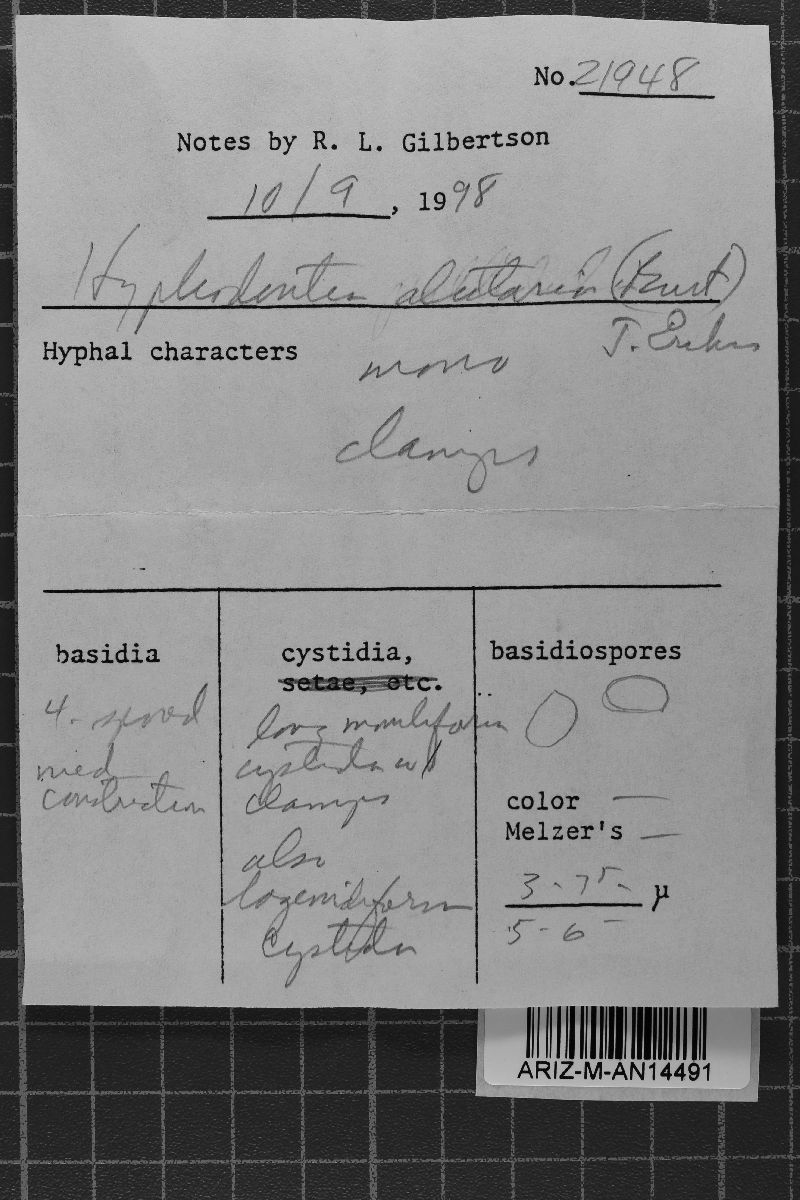 No. 21948
Notes by R. L. Gilbertson
10/9, 1998
Hyphodontia alutaria (Burt)
J. Erikss
Hyphal characters
mono
clamps
basidia
4-spored
med
constriction
cystidia,
setae, etc.
long moniliform
cystidia w/
clamps
also
lageniform
cystidia
basidiospores
color —
Melzer's —
5-6
μ
ARIZ-M-AN14491